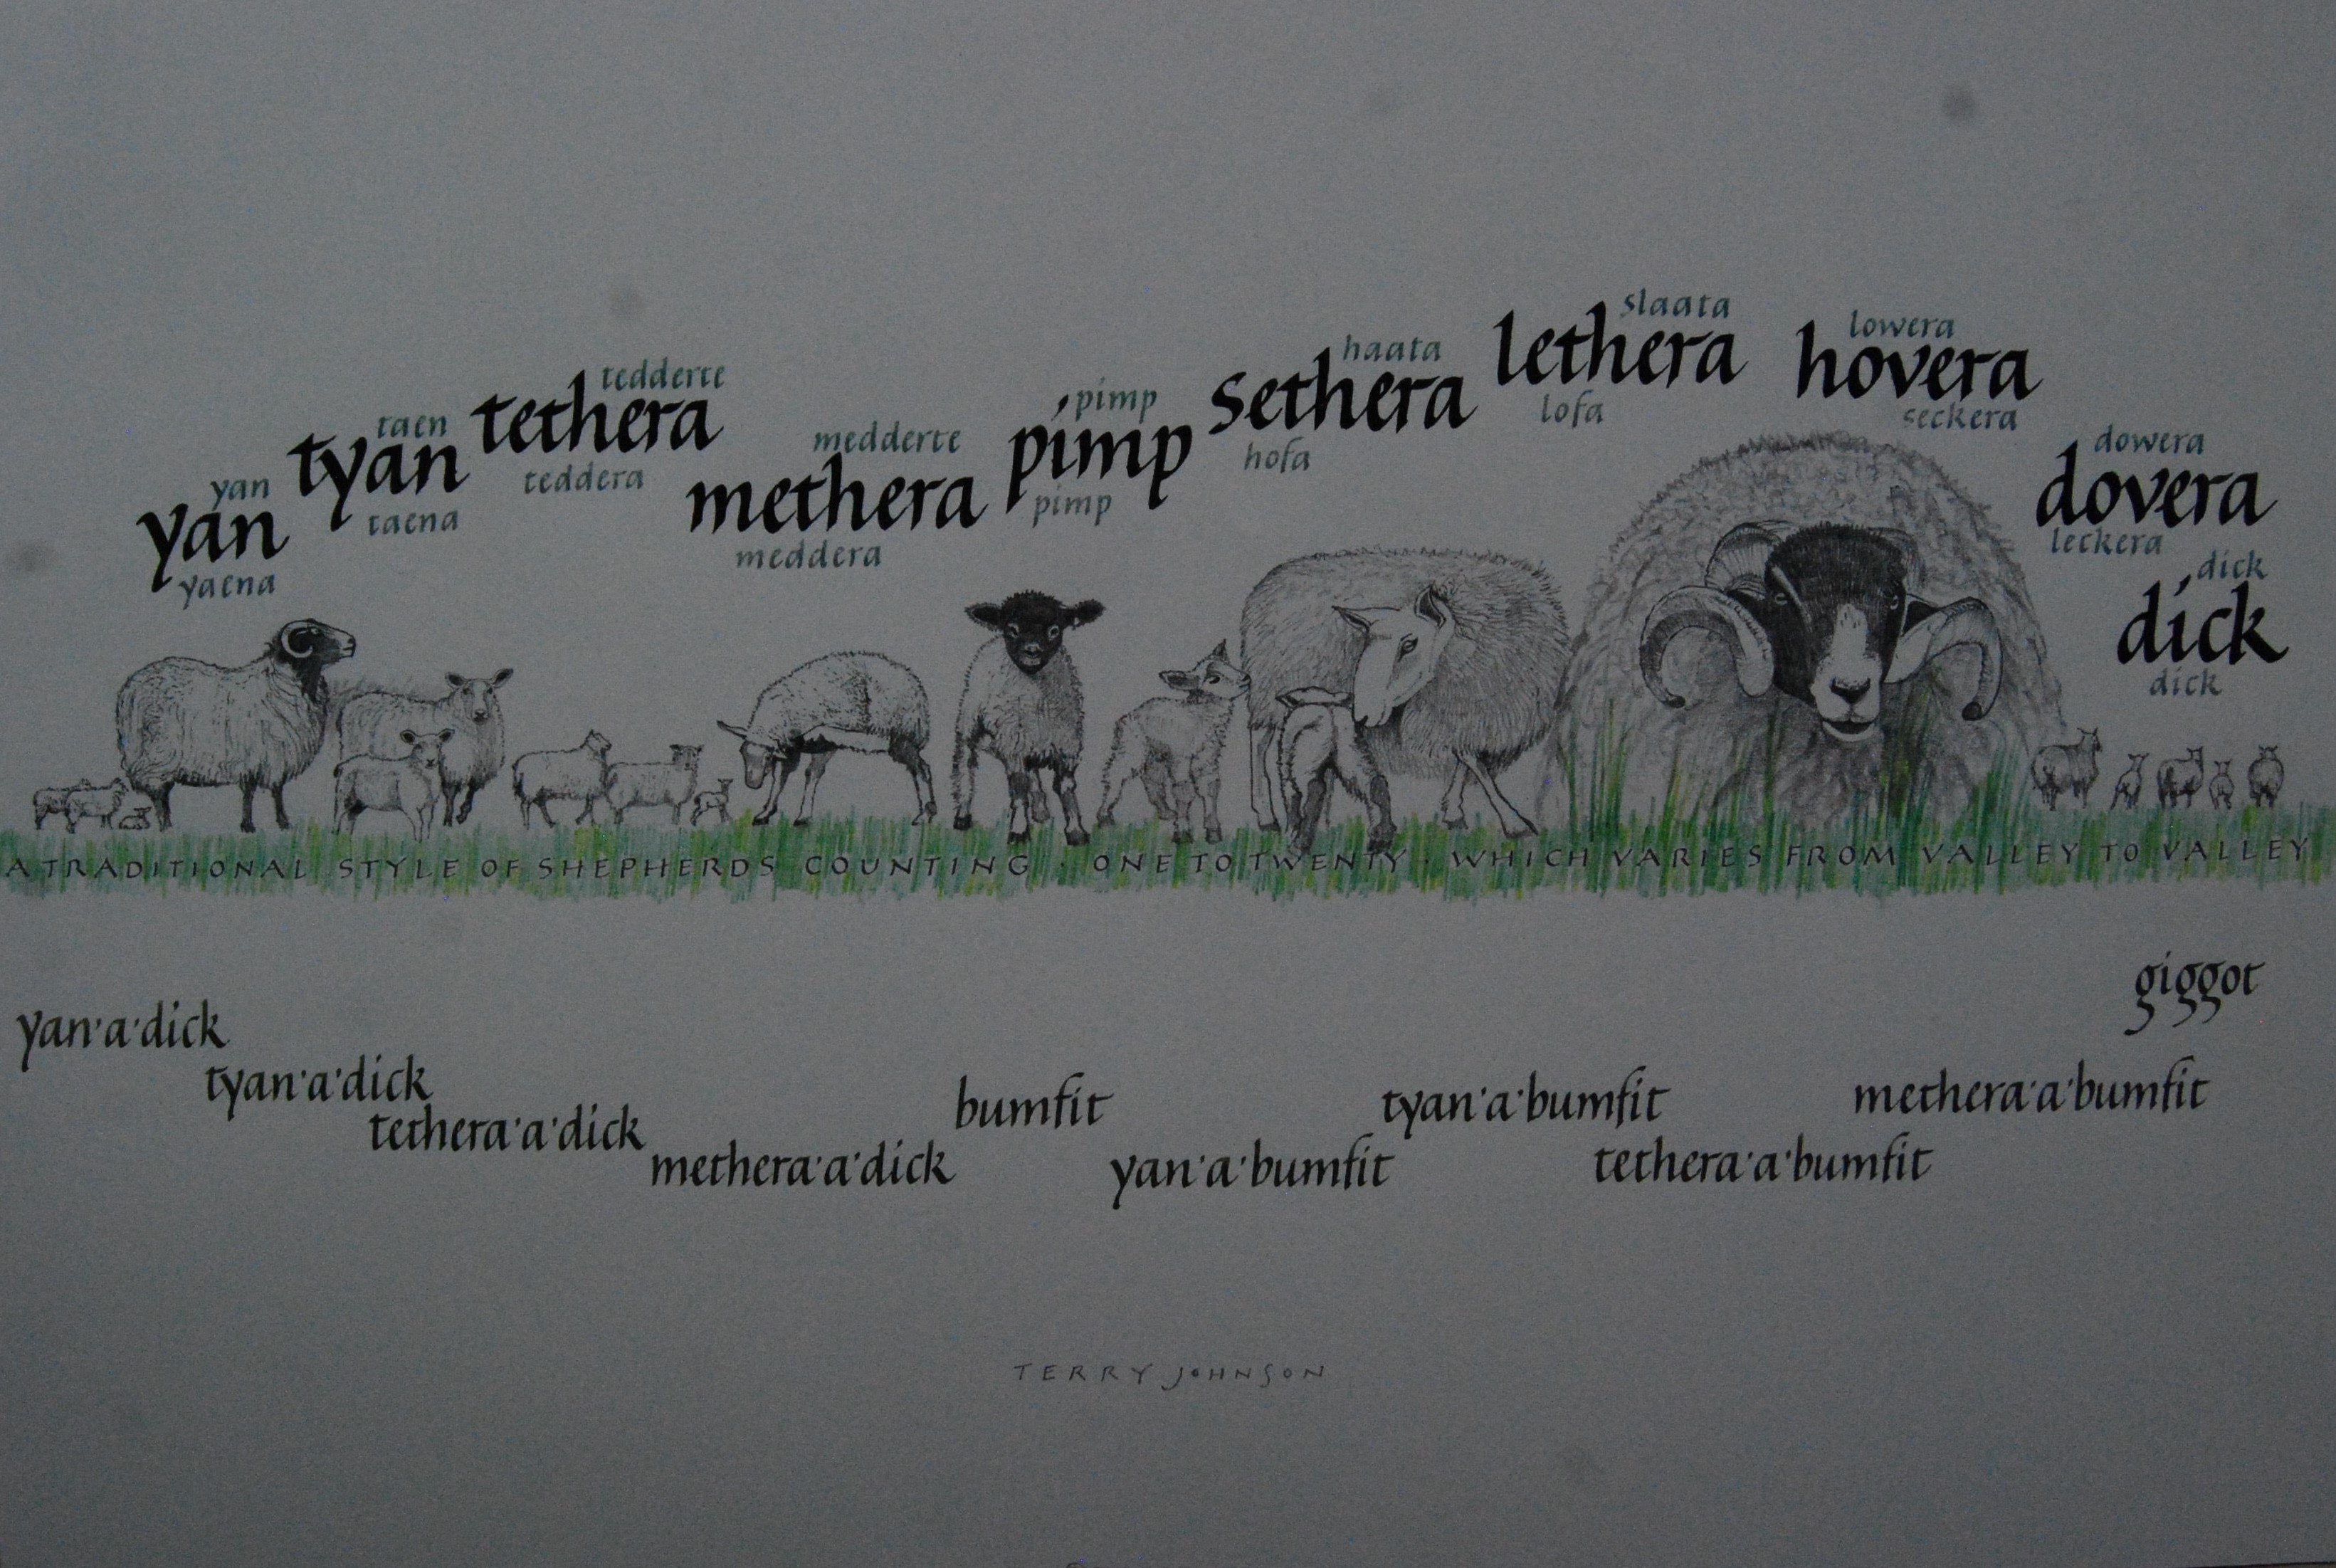 yan
yan
yaena
taen
tyan
taena
tedderte
tethera
teddera
medderte
methera
meddera
pimp
pimp
pimp
haata
sethera
hofa
slaata
lethera
lofa
lowera
hovera
seckera
dowera
dovera
leckera
dick
dick
dick
A TRADITIONAL STYLE OF SHEPHERDS COUNTING · ONE TO TWENTY · WHICH VARIES FROM VALLEY TO VALLEY
yan·a·dick
tyan·a·dick
tethera·a·dick
methera·a·dick
bumfit
yan·a·bumfit
tyan·a·bumfit
tethera·a·bumfit
methera·a·bumfit
giggot
TERRY JOHNSON